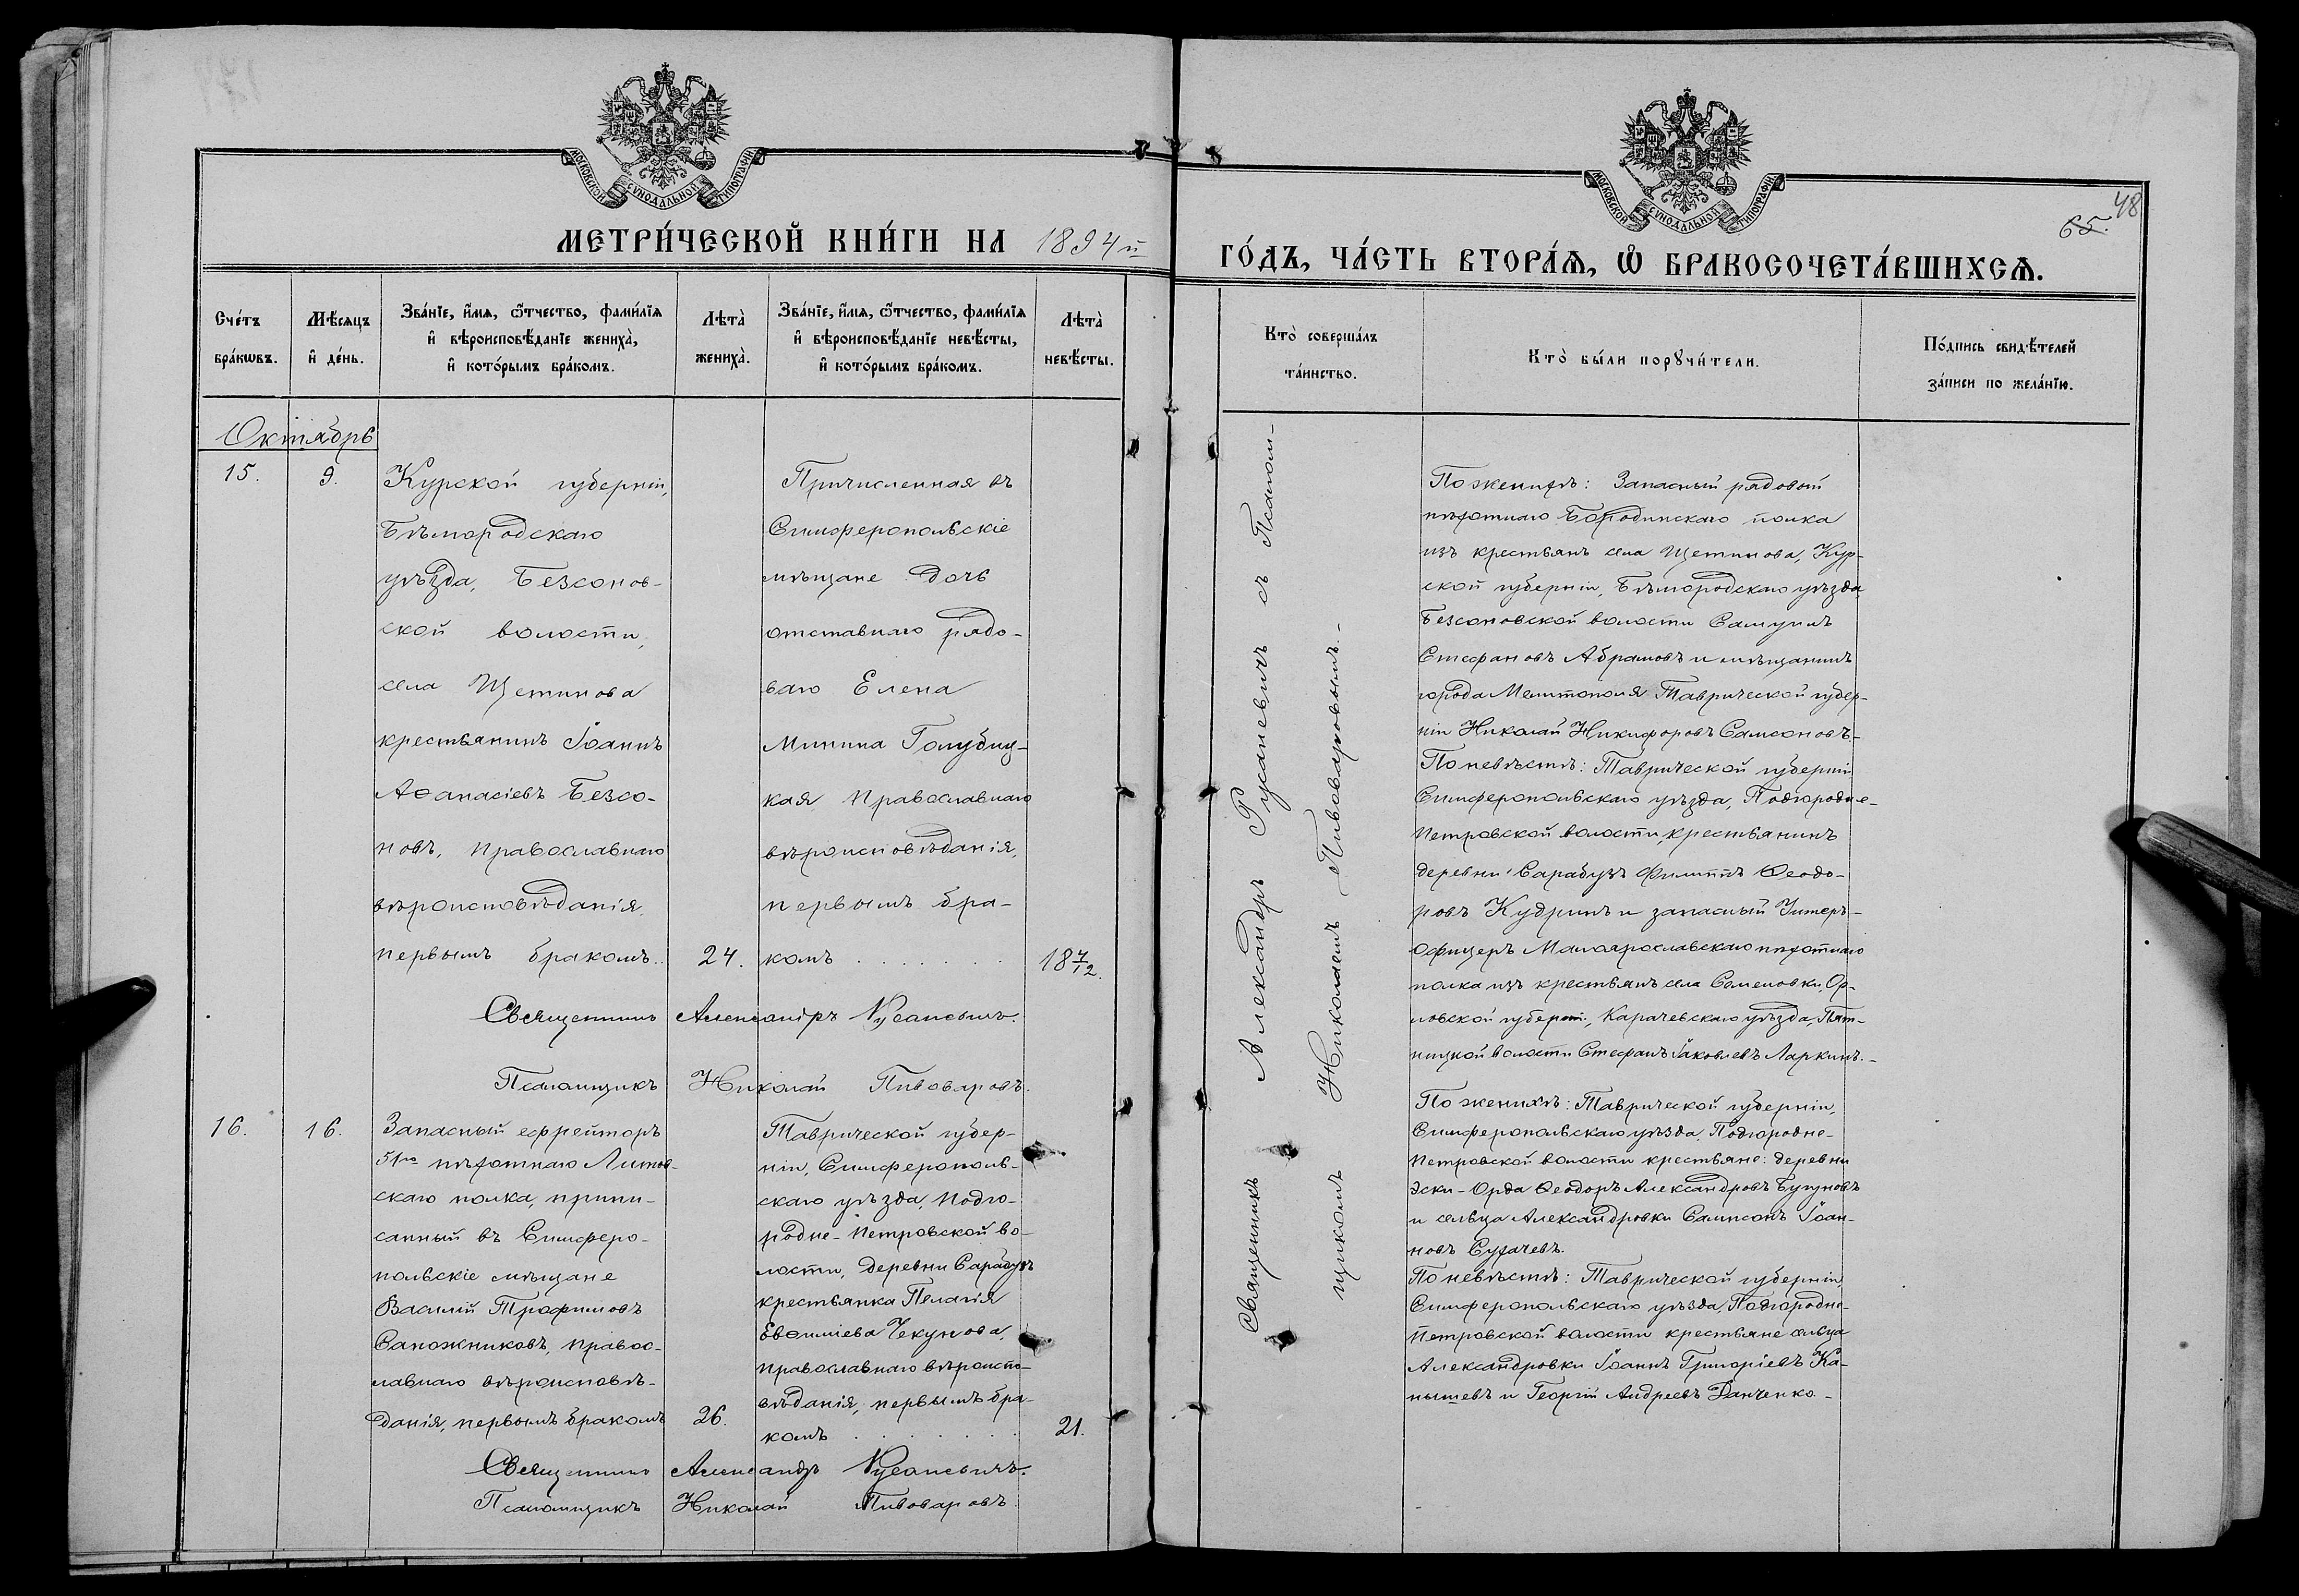 МОСКОВСКОЙ СУНОДАЛЬНОЙ ТИПОГРАФІИ
МЕТРИ́ЧЕСКОЙ КНИ́ГИ НА 1894й
Сче́тъ бра́кѡвъ.
Мѣ́сяцъ и҆ де́нь.
Зва́нїе, и҆́мѧ, ѻ҆́тчество, фами́лїѧ
и҆ вѣроисповѣ́данїе жениха̀,
и҆ кото́рымъ бра́комъ.
Лѣта̀ жениха̀.
Зва́нїе, и҆́мѧ, ѻ҆́тчество, фами́лїѧ
и҆ вѣроисповѣ́данїе невѣ́сты,
и҆ кото́рымъ бра́комъ.
Лѣта̀ невѣ́сты.
Октябрь
15.
9.
Курской губерніи,
Бѣлгородскаго
уѣзда, Безсонов-
ской волости,
села Щетинова
крестьянинъ Іоаннъ
Аѳанасіевъ Безсо-
новъ, православнаго
вѣроисповѣданія,
первымъ бракомъ..
24.
Причисленная въ
Симферопольскіе
мѣщане дочь
отставнаго рядо-
ваго Елена
Минина Голубиц-
кая православнаго
вѣроисповѣданія,
первымъ бра-
комъ . . . . . . .
18 4/12.
Священникъ Александръ Русаневичъ.
Псаломщикъ Николай Пивоваровъ.
16.
16.
Запасный ефрейторъ
51го пѣхотнаго Литов-
скаго полка, припи-
санный въ Симферо-
польскіе мѣщане
Василій Трофимовъ
Сапожниковъ, правос-
лавнаго вѣроисповѣ-
данія, первымъ бракомъ
26.
Таврической губер-
ніи, Симферополь-
скаго уѣзда, Подго-
родне-Петровской во-
лости, деревни Сарабузъ
крестьянка Пелагія
Евѳиміева Чекунова,
православнаго вѣроиспо-
вѣданія, первымъ бра-
комъ . . . . . . .
21.
Священникъ Александръ Русаневичъ.
Псаломщикъ Николай Пивоваровъ
МОСКОВСКОЙ СУНОДАЛЬНОЙ ТИПОГРАФІИ
48
65.
ГО́ДЪ, ЧА́СТЬ ВТОРА́Ѧ, Ѡ҆ БРАКОСОЧЕТА́ВШИХСѦ.
Кто̀ соверша́лъ
та́инство.
Кто̀ бы́ли порꙋчи́тели.
По́дпись свидѣ́телей
за́писи по жела́нїю.
Священникъ Александръ Русаневичъ съ Псалом-
щикомъ Николаемъ Пивоваровымъ.-
По женихѣ: Запасный рядовой
пѣхотнаго Бородинскаго полка
изъ крестьянъ села Щетинова, Кур-
ской губерніи, Бѣлгородскаго уѣзда,
Безсоновской волости Самуилъ
Стефановъ Абрамовъ и мѣщанинъ
города Мелитополя Таврической губер-
ніи Николай Никифоровъ Самсоновъ.-
По невѣстѣ: Таврической губерніи
Симферопольскаго уѣзда, Подгородне-
Петровской волости, крестьянинъ
деревни Сарабузъ Филиппъ Ѳеодо-
ровъ Кудринъ и запасный Унтеръ-
Офицеръ Малоярославскаго пѣхотнаго
полка изъ крестьянъ села Семеновки, Ор-
ловской губерніи, Карачевскаго уѣзда, Пят-
ницкой волости Стефанъ Іаковлевъ Ларкинъ.-
По женихѣ: Таврической губерніи,
Симферопольскаго уѣзда, Подгородне-
Петровской волости крестьяне: деревни
Эски-Орда Ѳеодоръ Александровъ Бугуновъ
и сельца Александровки Сампсонъ Іоан-
новъ Сухачевъ.
По невѣстѣ: Таврической губерніи,
Симферопольскаго уѣзда, Подгородне-
Петровской волости крестьяне сельца
Александровки Іоаннъ Григоріевъ Ка-
нышевъ и Георгій Андреевъ Данченко.-